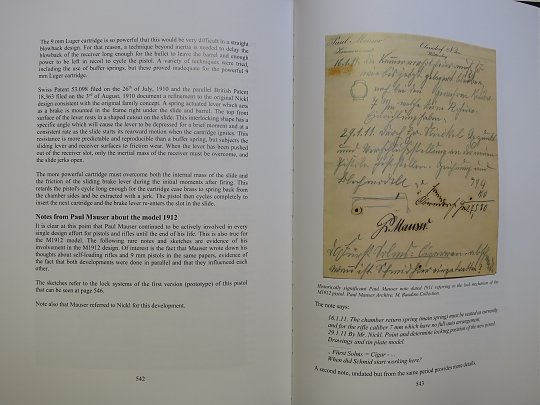 The 9 mm Luger cartridge is so powerful that this would be very difficult in a straight
blowback design. For that reason, a technique beyond inertia is needed to delay the
blowback of the receiver long enough for the bullet to leave the barrel and enough
power to be left in recoil to cycle the pistol. A variety of techniques were tried,
including the use of buffer springs, but these proved inadequate for the powerful 9
mm Luger cartridge.
Swiss Patent 53.098 filed on the 26th of July, 1910 and the parallel British Patent
18,363 filed on the 3rd of August, 1910 document a refinement to the original Nickl
design consistent with the original family concept. A spring actuated lever which acts
as a brake is mounted in the frame right under the slide and barrel. The top front
surface of the lever rests in a shaped cutout on the slide. This interlocking shape has a
specific angle which will cause the lever to be depressed for a brief moment and at a
consistent rate as the slide starts its rearward motion when the cartridge ignites. This
resistance is more predictable and reproducible than a buffer spring, but subjects the
sliding lever and receiver surfaces to friction wear. When the lever has been pushed
out of the receiver slot, only the inertial mass of the receiver must be overcome, and
the slide jerks open.
The more powerful cartridge must overcome both the internal mass of the slide and
the friction of the sliding brake lever during the initial moments after firing. This
retards the pistol's cycle long enough for the cartridge case brass to spring back from
the chamber sides and be extracted with a jerk. The pistol then cycles completely to
insert the next cartridge and the brake lever re-enters the slot in the slide.
Notes from Paul Mauser about the model 1912
It is clear at this point that Paul Mauser continued to be actively involved in every
single design effort for pistols and rifles until the end of his life. This is also true for
the M1912 model. The following rare notes and sketches are evidence of his
involvement in the M1912 design. Of interest is the fact that Mauser wrote down his
thoughts about self-loading rifles and 9 mm pistols in the same papers, evidence of
the fact that both developments were done in parallel and that they influenced each
other.
The sketches refer to the lock systems of the first version (prototype) of this pistol
that can be seen at page 546.
Note also that Mauser referred to Nickl for this development.
542
Paul Mauser
Oberndorf a/N.
16.1.11.
29.1.11.
P. Mauser
Historically significant Paul Mauser note dated 1911 referring to the lock mechanism of the
M1912 pistol. Paul Mauser Archive, M. Baudino Collection.
The note says:
16.1.11. The chamber return spring (main spring) must be seated as currently
and for the rifle caliber 7 mm which have no full auto arrangement.
29.1.11 By Mr. Nickl. Point and determine locking position of the new pistol.
Drawings and tin plate model.
. Fürst Solms = Cigar - ..
When did Schmid start working here?
A second note, undated but from the same period provides more details.
543